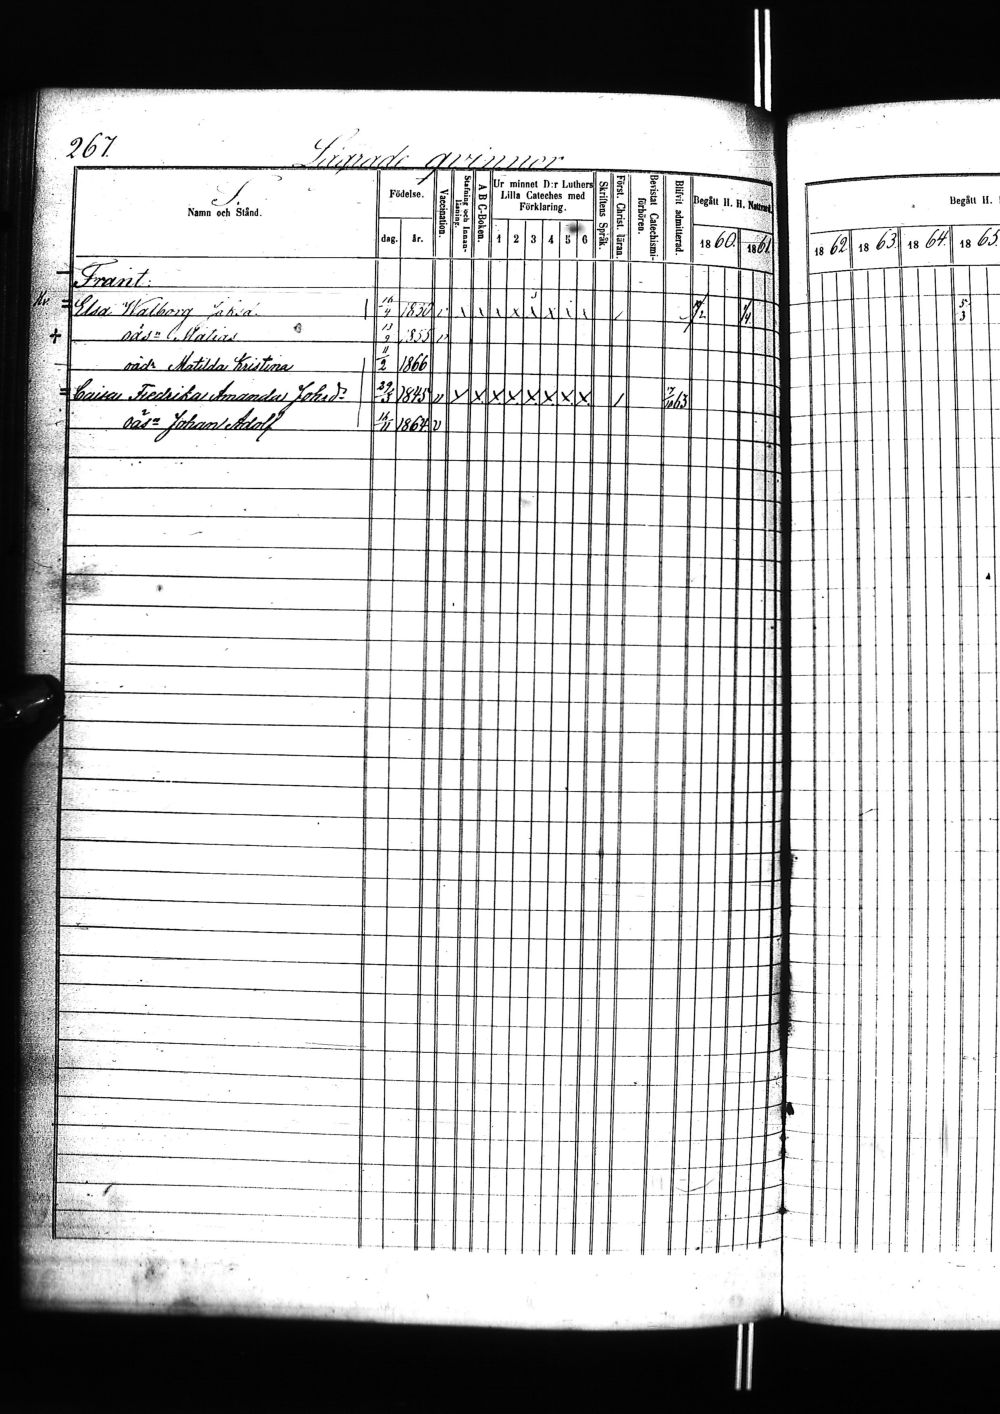 267.
Lägrade qvinnor
S.
Namn och Stånd.
Födelse.
dag. år.
Vaccination.
Stafning och Innanläsning.
A B C-Boken.
Ur minnet D:r Luthers Lilla Cateches med Förklaring.
1 2 3 4 5 6
Skriftens Språk.
Först. Christ. läran.
Bevistat Catechismiförhören.
Blifvit admitterad.
Begått H. H. Nattvard.
1860. 1861.
Begått H.
1862. 1863. 1864. 1865.
Frant:
Elsa Walborg 16/4 1830 v
oäs:n Matias 13/9 1855 v
oäd:r Matilda Kristina 11/2 1866
Caisa Fredrika Amanda Joh:sd:r 29/3 1845 v x x x x x x x x 63
oäs:n Johan Adolf 1864 v
5/3